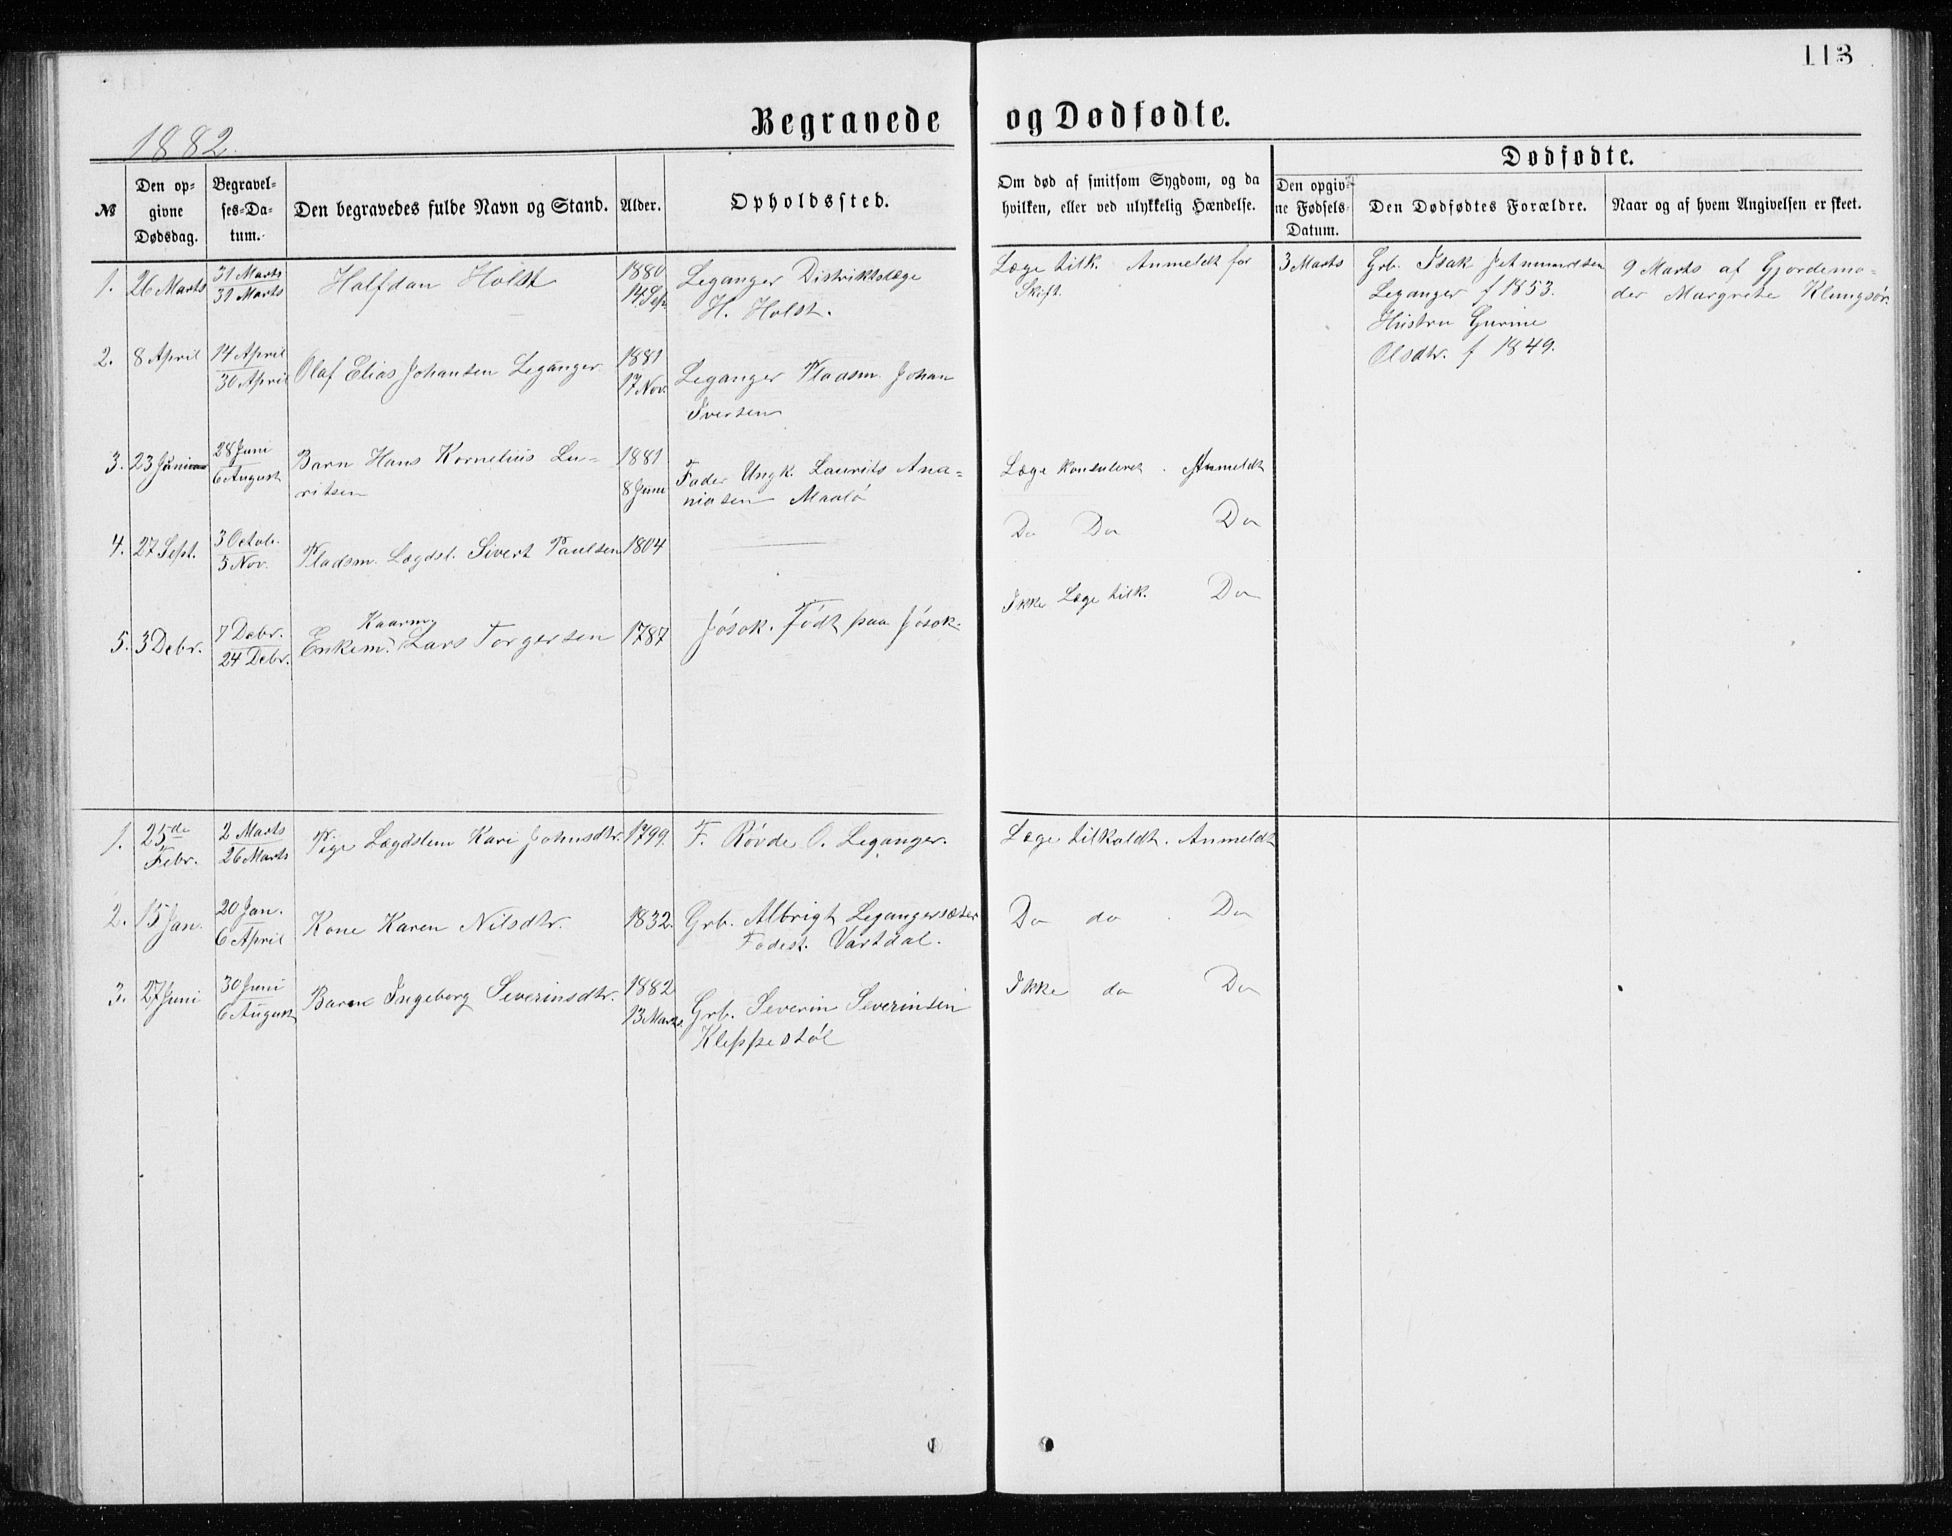 113
Begravede og Dødfødte.
1882.
№
Den op-
givne
Dødsdag.
Begravel-
ses-Da-
tum.
Den begravedes fulde Navn og Stand.
Alder.
Opholdssted.
Om død af smitsom Sygdom, og da
hvilken, eller ved ulykkelig Hændelse.
Dødfødte.
Den opgiv-
ne Fødsels-
Datum.
Den Dødfødtes Forældre.
Naar og af hvem Angivelsen er skeet.
1. 26 Marts 31 Marts Halfdan Holst 1880 Leganger Distriktslæge Læge tilk. Anmeldt for 3 Marts Grb. Isak 9 Marts af Gjordemo-
31 Marts 14 Sep. H. Holst. Skift. Leganger f 1853. der Margrete Klungsør.
Hustru Gurine
Olsdtr. f 1849.
2. 8 April 14 April Olaf Elias Johansen Leganger 1881 Leganger Pladsm. Johan
30 April 17 Nov. Iversen
3. 23 Juni 28 Juni Barn Hans Kornelius Lau- 1881 Fader Ungk. Laurits Ana- Læge konsuleret. Anmeldt
6 August ritsen 8 Juni niasen Maalø
4. 27 Sept. 3 Octob. Pladsm. Lægdsl. Sivert Paulsen 1804 Do Do Do
5 Nov.
Kaarmg
5. 3 Debr. 7 Debr. Enkem. Lars Torgersen 1787 Jøsok. Født paa Jøsok. Ikke Læge tilk. Do
24 Debr.
1. 25de 2 Marts Pige Lægdslem Kari Johnsdtr. 1799 F. Røvde O. Leganger. Læge tilkaldt. Anmeldt
Febr. 26 Marts
2. 15 Jan. 20 Jan. Kone Karen Nilsdtr. 1832. Grb. Albrigt Legangersæter Do do. Do
6 April Fødest. Vartdal.
3. 27 Juni 30 Juni Barn Ingeborg Severinsdtr. 1882 Grb. Severin Severinsen Ikke do Do
6 August 13 Marts Kleppestøl